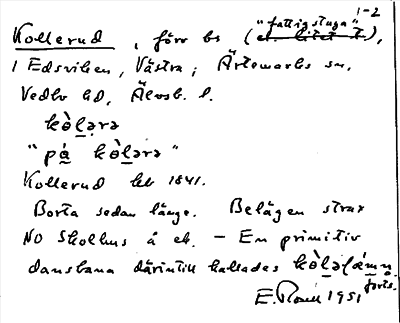 1-2
Kollerud, förr bs ("fattigstuga" et. litet t.),
i Edsviken, Västra; Ärtemarks sn,
Vedbo hd, Älvsb. l.
kò̀lərə
"på kò̀lərə"
Kollerud lht 1841.
Borta sedan länge. Belägen strax
NO Skolhus å ek. – En primitiv
dansbana därintill kallades
forts.
1951